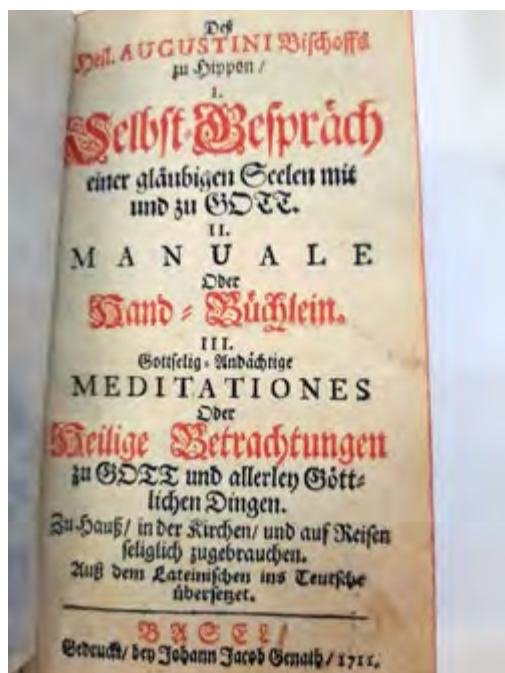 Deß
Heil. AUGUSTINI Bischoffs
zu Hippon /
I.
Selbst-Gespräch
einer gläubigen Seelen mit
und zu GOTT.
II.
MANUALE
Oder
Hand-Büchlein.
III.
Gottselig-Andächtige
MEDITATIONES
Oder
Heilige Betrachtungen
zu GOTT und allerley Gött-
lichen Dingen.
Zu Hauß / in der Kirchen / und auf Reisen
seliglich zugebrauchen.
Auß dem Lateinischen ins Teutsche
übersetzet.
BASEL /
Gedruckt / bey Johann Jacob Genath / 1711.